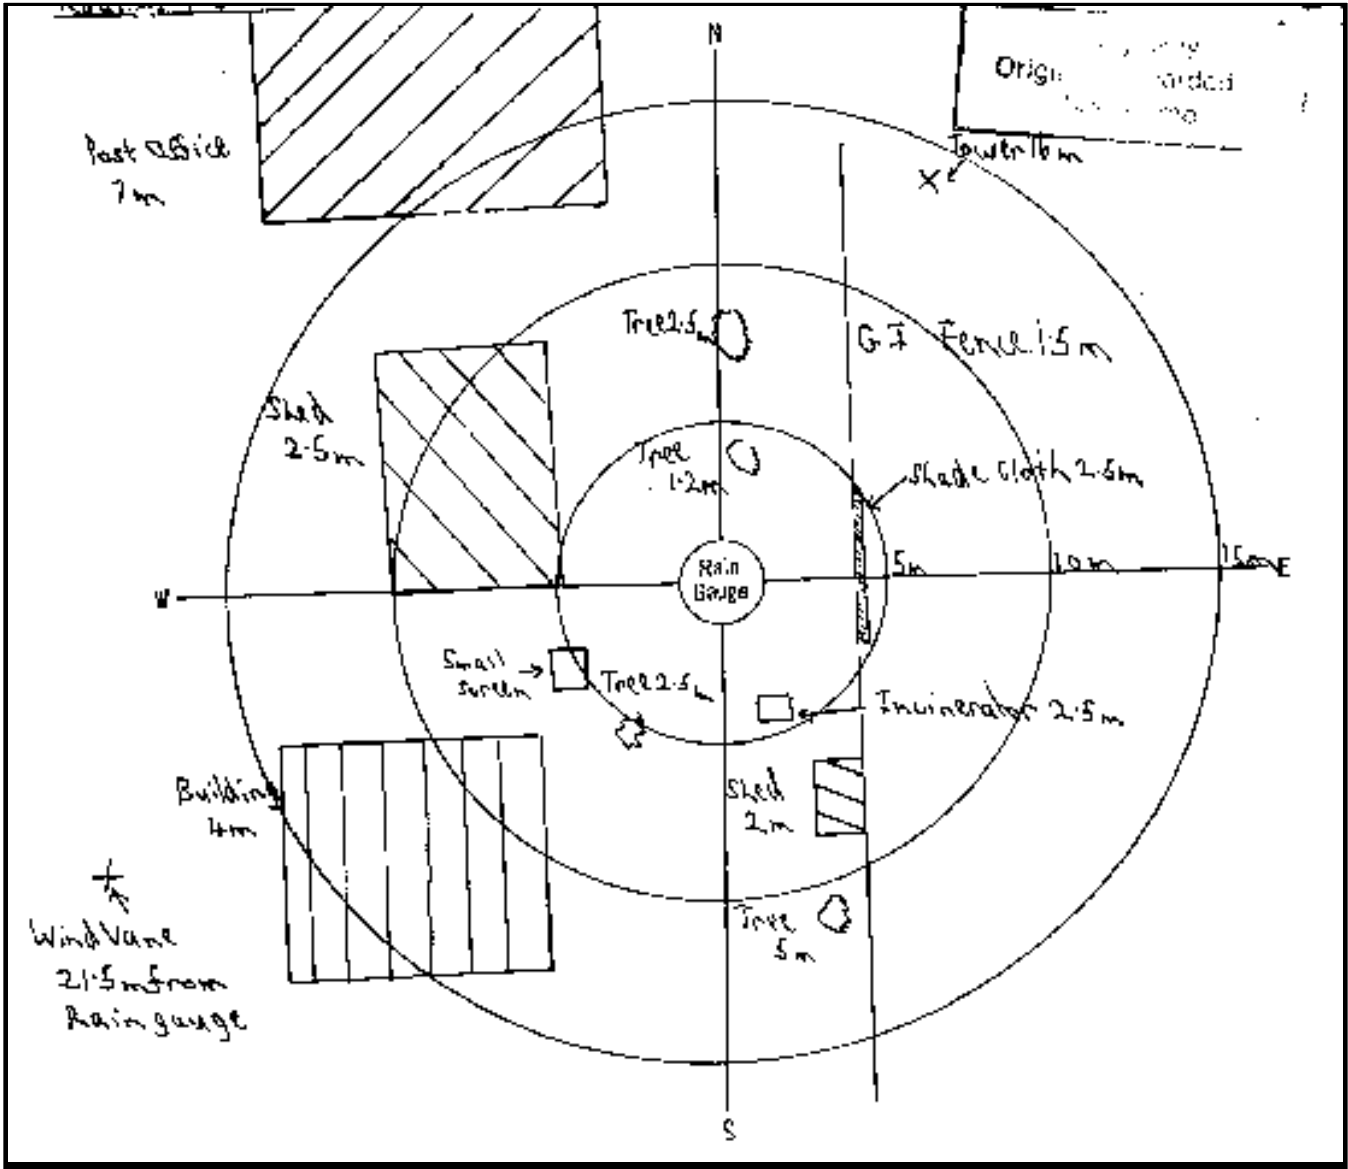 N
Post Office
7m
Tower 16m
X
Tree 2.5m
G I Fence 1.5m
Shed
2.5m
Tree
1.2m
Shade Cloth 2.5m
Rain
Gauge
5m
10m
15m
E
W
Small
screen
Tree 2.5m
Incinerator 2.5m
Building
4m
Shed
2m
Tree
5m
Wind Vane
21.5m from
Rain gauge
S